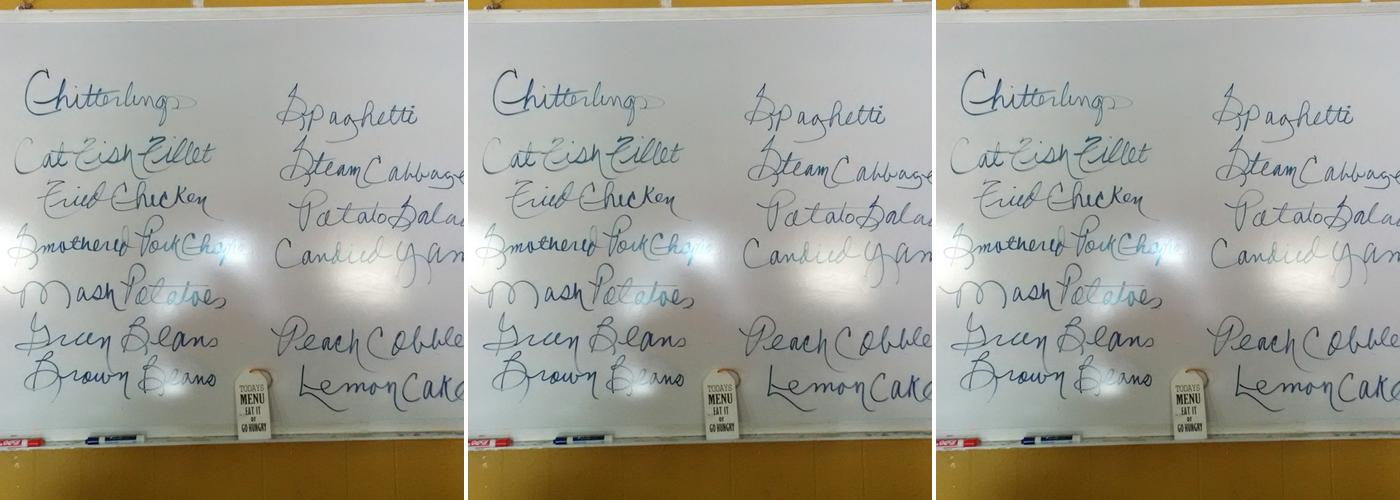 Chitterlings
Cat Fish Fillet
Fried Chicken
Smothered Pork Chops
Mash Potatoes
Green Beans
Brown Beans
Spaghetti
Steam Cabbage
Potato Sala
Candied Yam
Peach Cobble
Lemon Cake
TODAYS
MENU
EAT IT
or
GO HUNGRY
Chitterlings
Cat Fish Fillet
Fried Chicken
Smothered Pork Chops
Mash Potatoes
Green Beans
Brown Beans
Spaghetti
Steam Cabbage
Potato Sala
Candied Yam
Peach Cobble
Lemon Cake
TODAYS
MENU
EAT IT
or
GO HUNGRY
Chitterlings
Cat Fish Fillet
Fried Chicken
Smothered Pork Chops
Mash Potatoes
Green Beans
Brown Beans
Spaghetti
Steam Cabbage
Potato Sala
Candied Yam
Peach Cobble
Lemon Cake
TODAYS
MENU
EAT IT
or
GO HUNGRY